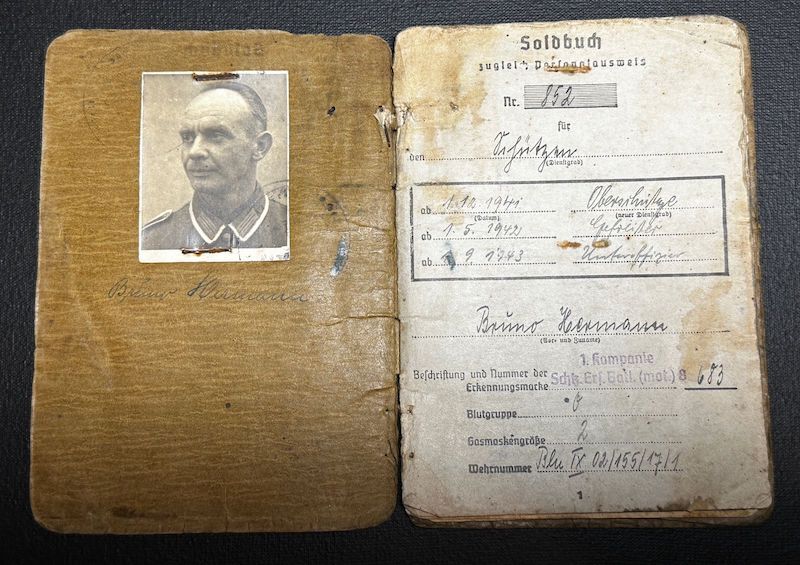 Bruno Hermann
Soldbuch
zugleich Personalausweis
Nr. 852
für
den Schützen
(Dienstgrad)
ab 1.10.1941 Oberschütze
(Datum) (neuer Dienstgrad)
ab 1.5.1942 Gefreiter
ab 1.9.1943 Unteroffizier
Bruno Hermann
(Vor- und Zuname)
1. Kompanie
Beschriftung und Nummer der
Schtz. Ers. Batl. (mot.) 8 683
Erkennungsmarke
Blutgruppe
Gasmaskengröße 2
Wehrnummer Bln IX 02/155/17/1
1